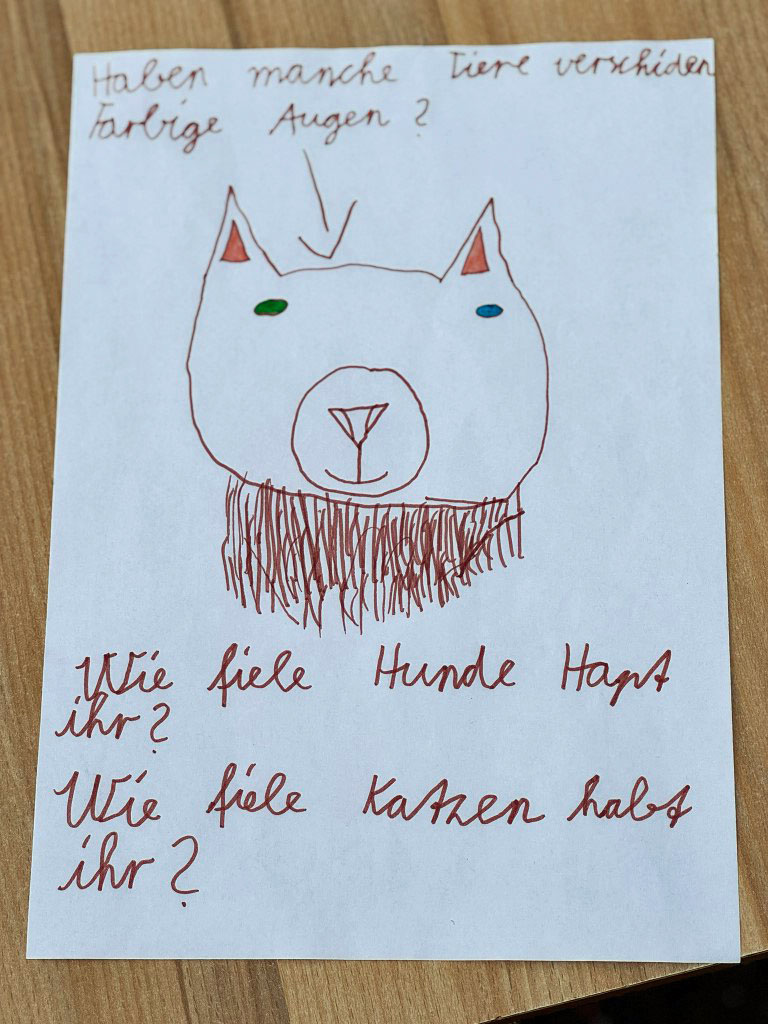 Haben manche Tiere verschiden
Farbige Augen?
Wie fiele Hunde Hapt
ihr?
Wie fiele Katzen habt
ihr?